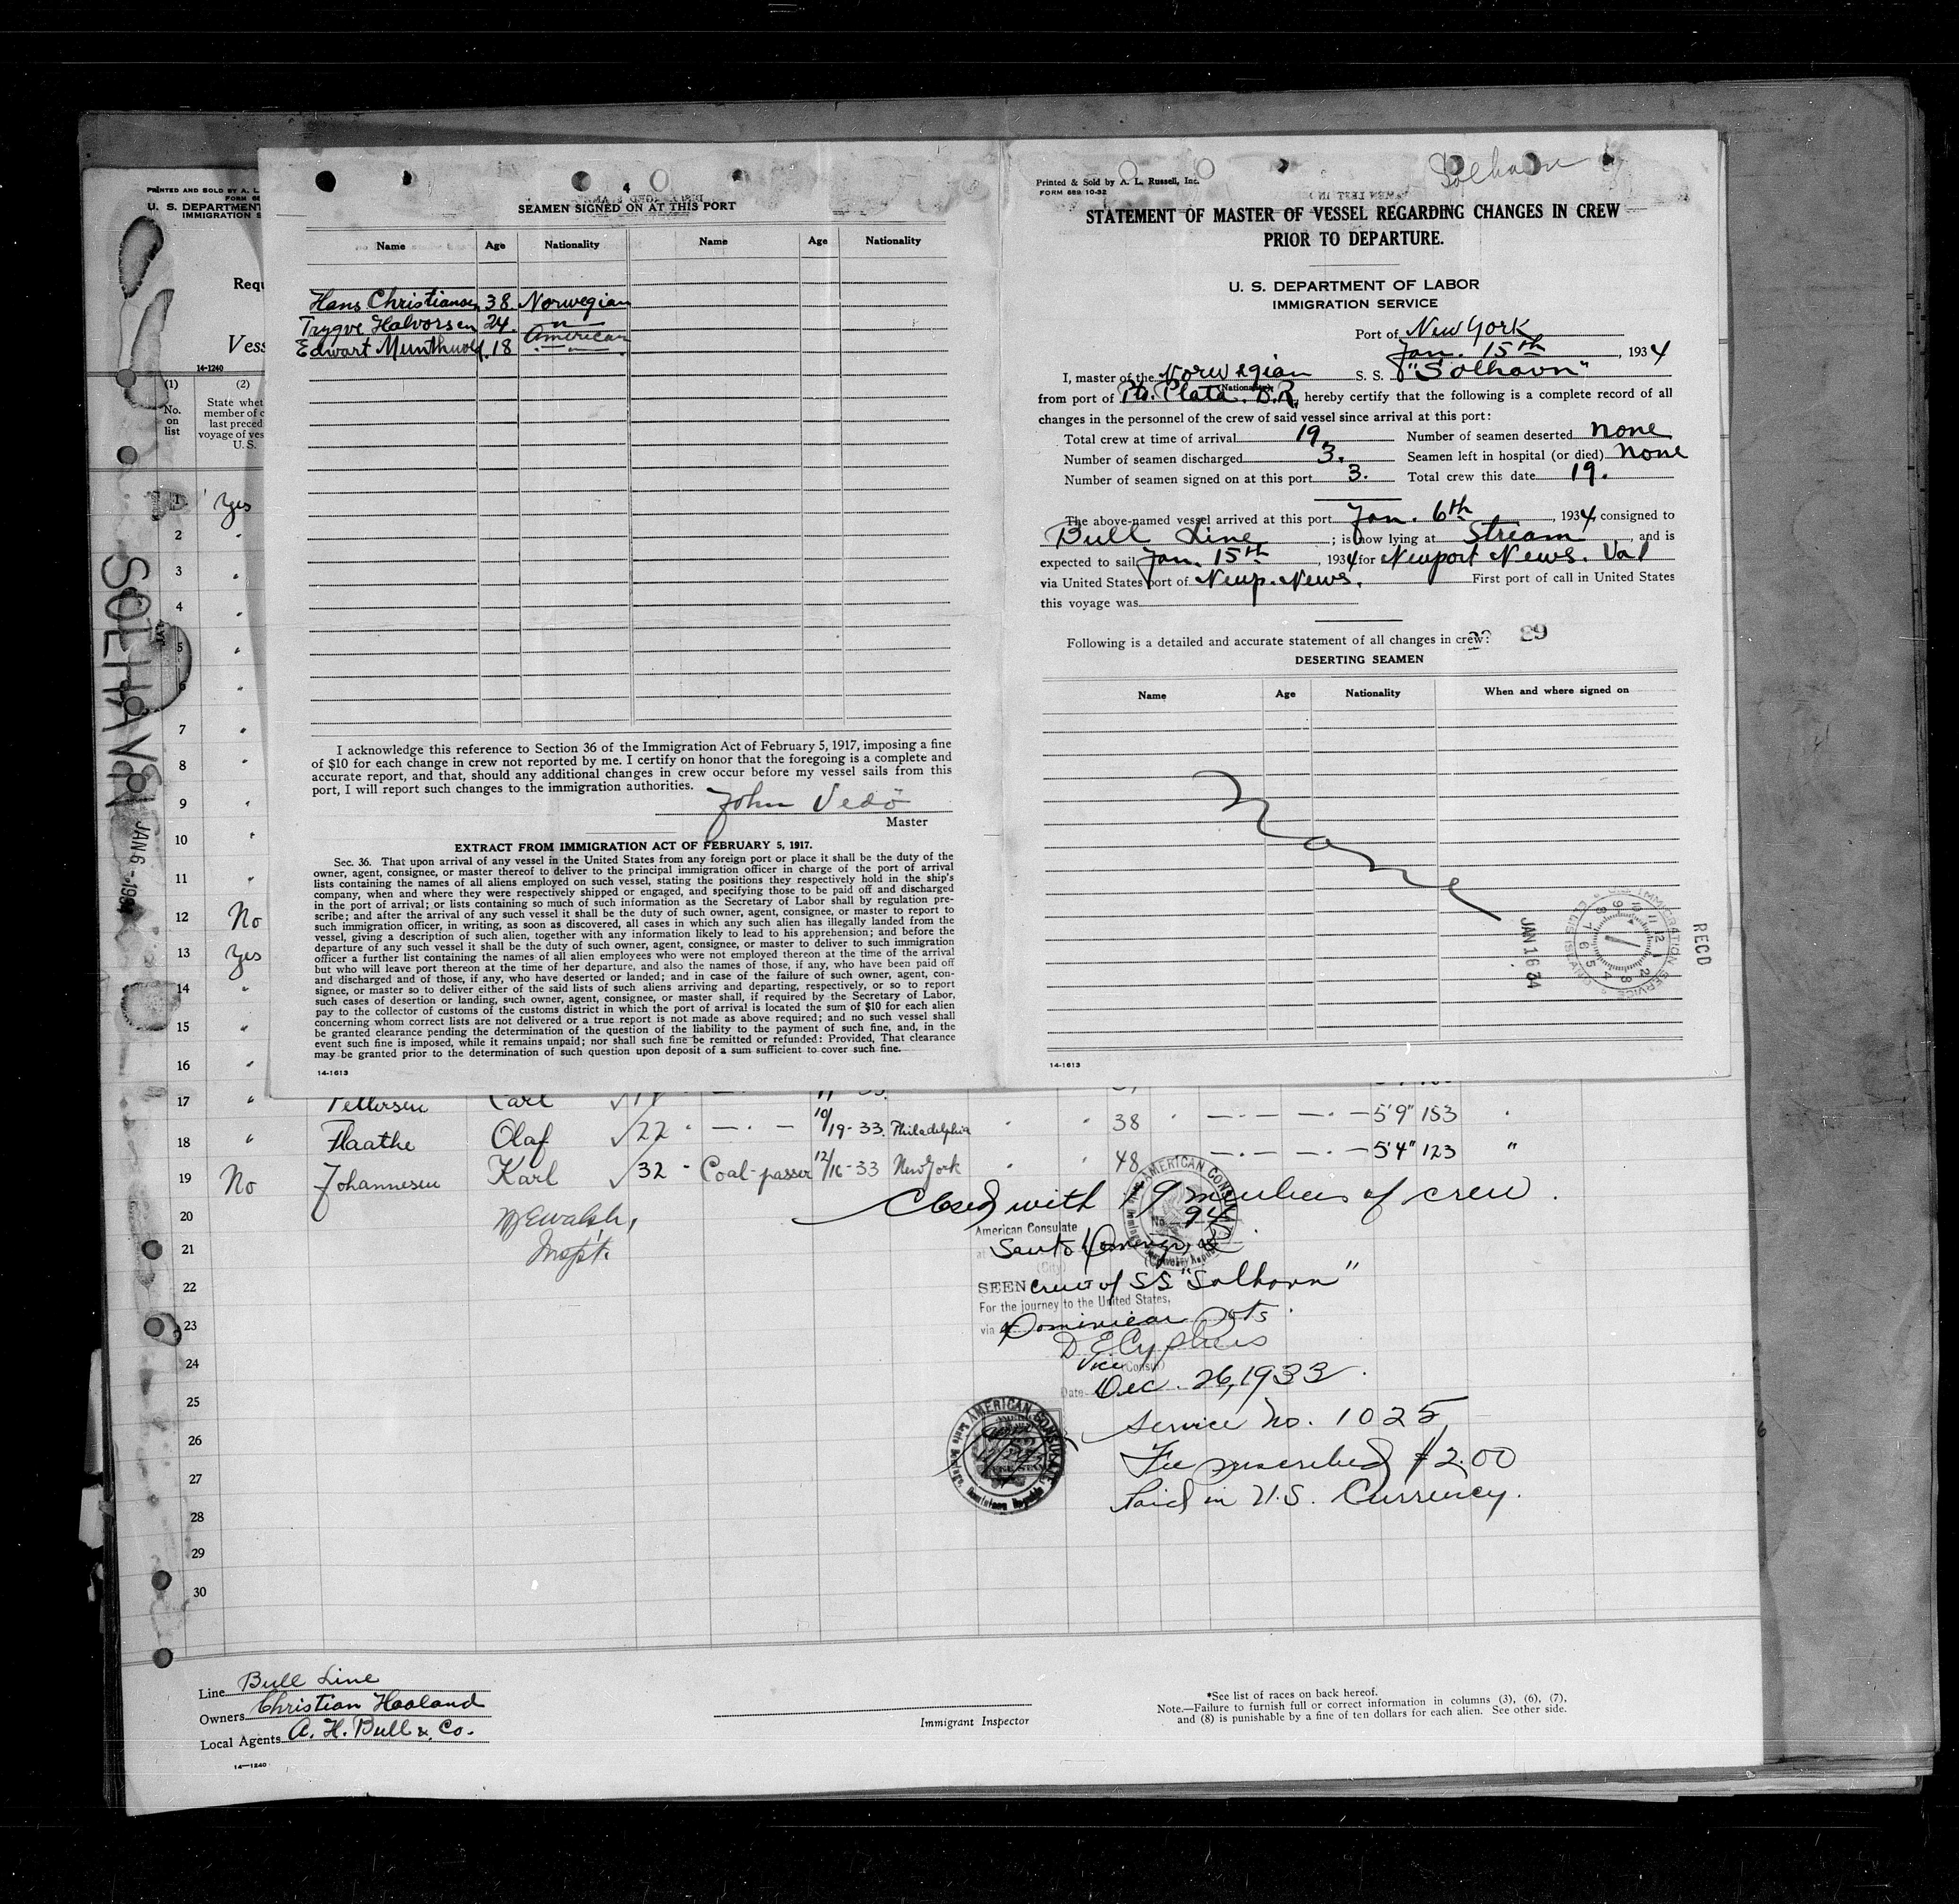 PRINTED AND SOLD BY A. L.
U. S. DEPARTMENT
IMMIGRATION S
Requ
Vess
14-1240
(1)
No.
on
list
(2)
State whet
member of c
last preced
voyage of ves
U. S.
SOLHAVN
JAN 6 - 1934
1 Yes
2 "
3 "
4 "
5 "
6 "
7 "
8 "
9 "
10 "
11 "
12 No
13 Yes
14 "
15 "
16 "
4
SEAMEN SIGNED ON AT THIS PORT
Name Age Nationality Name Age Nationality
Hans Christiansen 38. Norwegian
Trygve Halvorsen 24. — " —
Edwart Munthwolf. 18 American
I acknowledge this reference to Section 36 of the Immigration Act of February 5, 1917, imposing a fine
of $10 for each change in crew not reported by me. I certify on honor that the foregoing is a complete and
accurate report, and that, should any additional changes in crew occur before my vessel sails from this
port, I will report such changes to the immigration authorities.
John Vedö
Master
EXTRACT FROM IMMIGRATION ACT OF FEBRUARY 5, 1917.
Sec. 36. That upon arrival of any vessel in the United States from any foreign port or place it shall be the duty of the
owner, agent, consignee, or master thereof to deliver to the principal immigration officer in charge of the port of arrival
lists containing the names of all aliens employed on such vessel, stating the positions they respectively hold in the ship's
company, when and where they were respectively shipped or engaged, and specifying those to be paid off and discharged
in the port of arrival; or lists containing so much of such information as the Secretary of Labor shall by regulation pre-
scribe; and after the arrival of any such vessel it shall be the duty of such owner, agent, consignee, or master to report to
such immigration officer, in writing, as soon as discovered, all cases in which any such alien has illegally landed from the
vessel, giving a description of such alien, together with any information likely to lead to his apprehension; and before the
departure of any such vessel it shall be the duty of such owner, agent, consignee, or master to deliver to such immigration
officer a further list containing the names of all alien employees who were not employed thereon at the time of the arrival
but who will leave port thereon at the time of her departure, and also the names of those, if any, who have been paid off
and discharged and of those, if any, who have deserted or landed; and in case of the failure of such owner, agent, con-
signee, or master so to deliver either of the said lists of such aliens arriving and departing, respectively, or so to report
such cases of desertion or landing, such owner, agent, consignee, or master shall, if required by the Secretary of Labor,
pay to the collector of customs of the customs district in which the port of arrival is located the sum of $10 for each alien
concerning whom correct lists are not delivered or a true report is not made as above required; and no such vessel shall
be granted clearance pending the determination of the question of the liability to the payment of such fine, and, in the
event such fine is imposed, while it remains unpaid; nor shall such fine be remitted or refunded: Provided, That clearance
may be granted prior to the determination of such question upon deposit of a sum sufficient to cover such fine.
14-1613
Solhavn
Printed & Sold by A. L. Russell, Inc.
FORM 689 10-32
STATEMENT OF MASTER OF VESSEL REGARDING CHANGES IN CREW
PRIOR TO DEPARTURE.
U. S. DEPARTMENT OF LABOR
IMMIGRATION SERVICE
Port of New York
Jan. 15th, 1934
I, master of the Norwegian S. S. "Solhavn"
(Nationality)
from port of Pto. Plata. D.R., hereby certify that the following is a complete record of all
changes in the personnel of the crew of said vessel since arrival at this port:
Total crew at time of arrival 19. Number of seamen deserted none
Number of seamen discharged 3. Seamen left in hospital (or died) none
Number of seamen signed on at this port 3. Total crew this date 19.
The above-named vessel arrived at this port Jan. 6th, 1934, consigned to
Bull Line; is now lying at Stream, and is
expected to sail Jan. 15th, 1934 for Newport News. Va
via United States port of Newp. News. First port of call in United States
this voyage was
Following is a detailed and accurate statement of all changes in crew:
89
DESERTING SEAMEN
Name Age Nationality When and where signed on
None
RECD
JAN 16 34
14-1613
17 " Pettersen Carl
18 " Flaathe Olaf 22 " — " — 10/19-33. Philadelphia " " 38 " 5'9" 153 "
19 No Johannesen Karl 32 " Coal-passer 12/16-33 New York " " 48 5'4" 123 "
20
21
22
23
24
25
26
27
28
29
30
W E Walsh,
Inspt.
Closed with 19 members of crew.
No. 94
American Consulate
at Santo Domingo
(City)
SEEN crew of SS "Solhavn"
For the journey to the United States,
via Dominican Pots.
D. E. Cyphers
Vice (Consul)
Date Dec. 26, 1933.
AMERICAN CONSULATE
Santo Domingo, Dominican Republic
Service No. 1025
Fee prescribed $2.00
Paid in U.S. Currency.
Line Bull Line
Owners Christian Haaland
Local Agents A. H. Bull & Co.
14-1240
Immigrant Inspector
*See list of races on back hereof.
Note.—Failure to furnish full or correct information in columns (3), (6), (7),
and (8) is punishable by a fine of ten dollars for each alien. See other side.